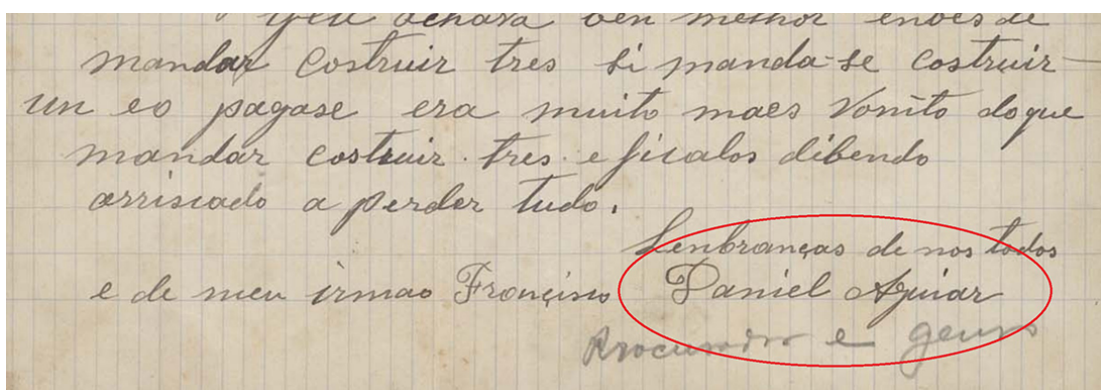 Yeu achara ven melhor envés de
mandar costruir tres si manda-se costruir
un eo pagase era muito maes vonito doque
mandar costruir tres e ficalos dibendo
arriscado a perder tudo.
Lenbranças de nos todos
e de meu irmao Francisco Daniel Aguiar
Procurador e genro